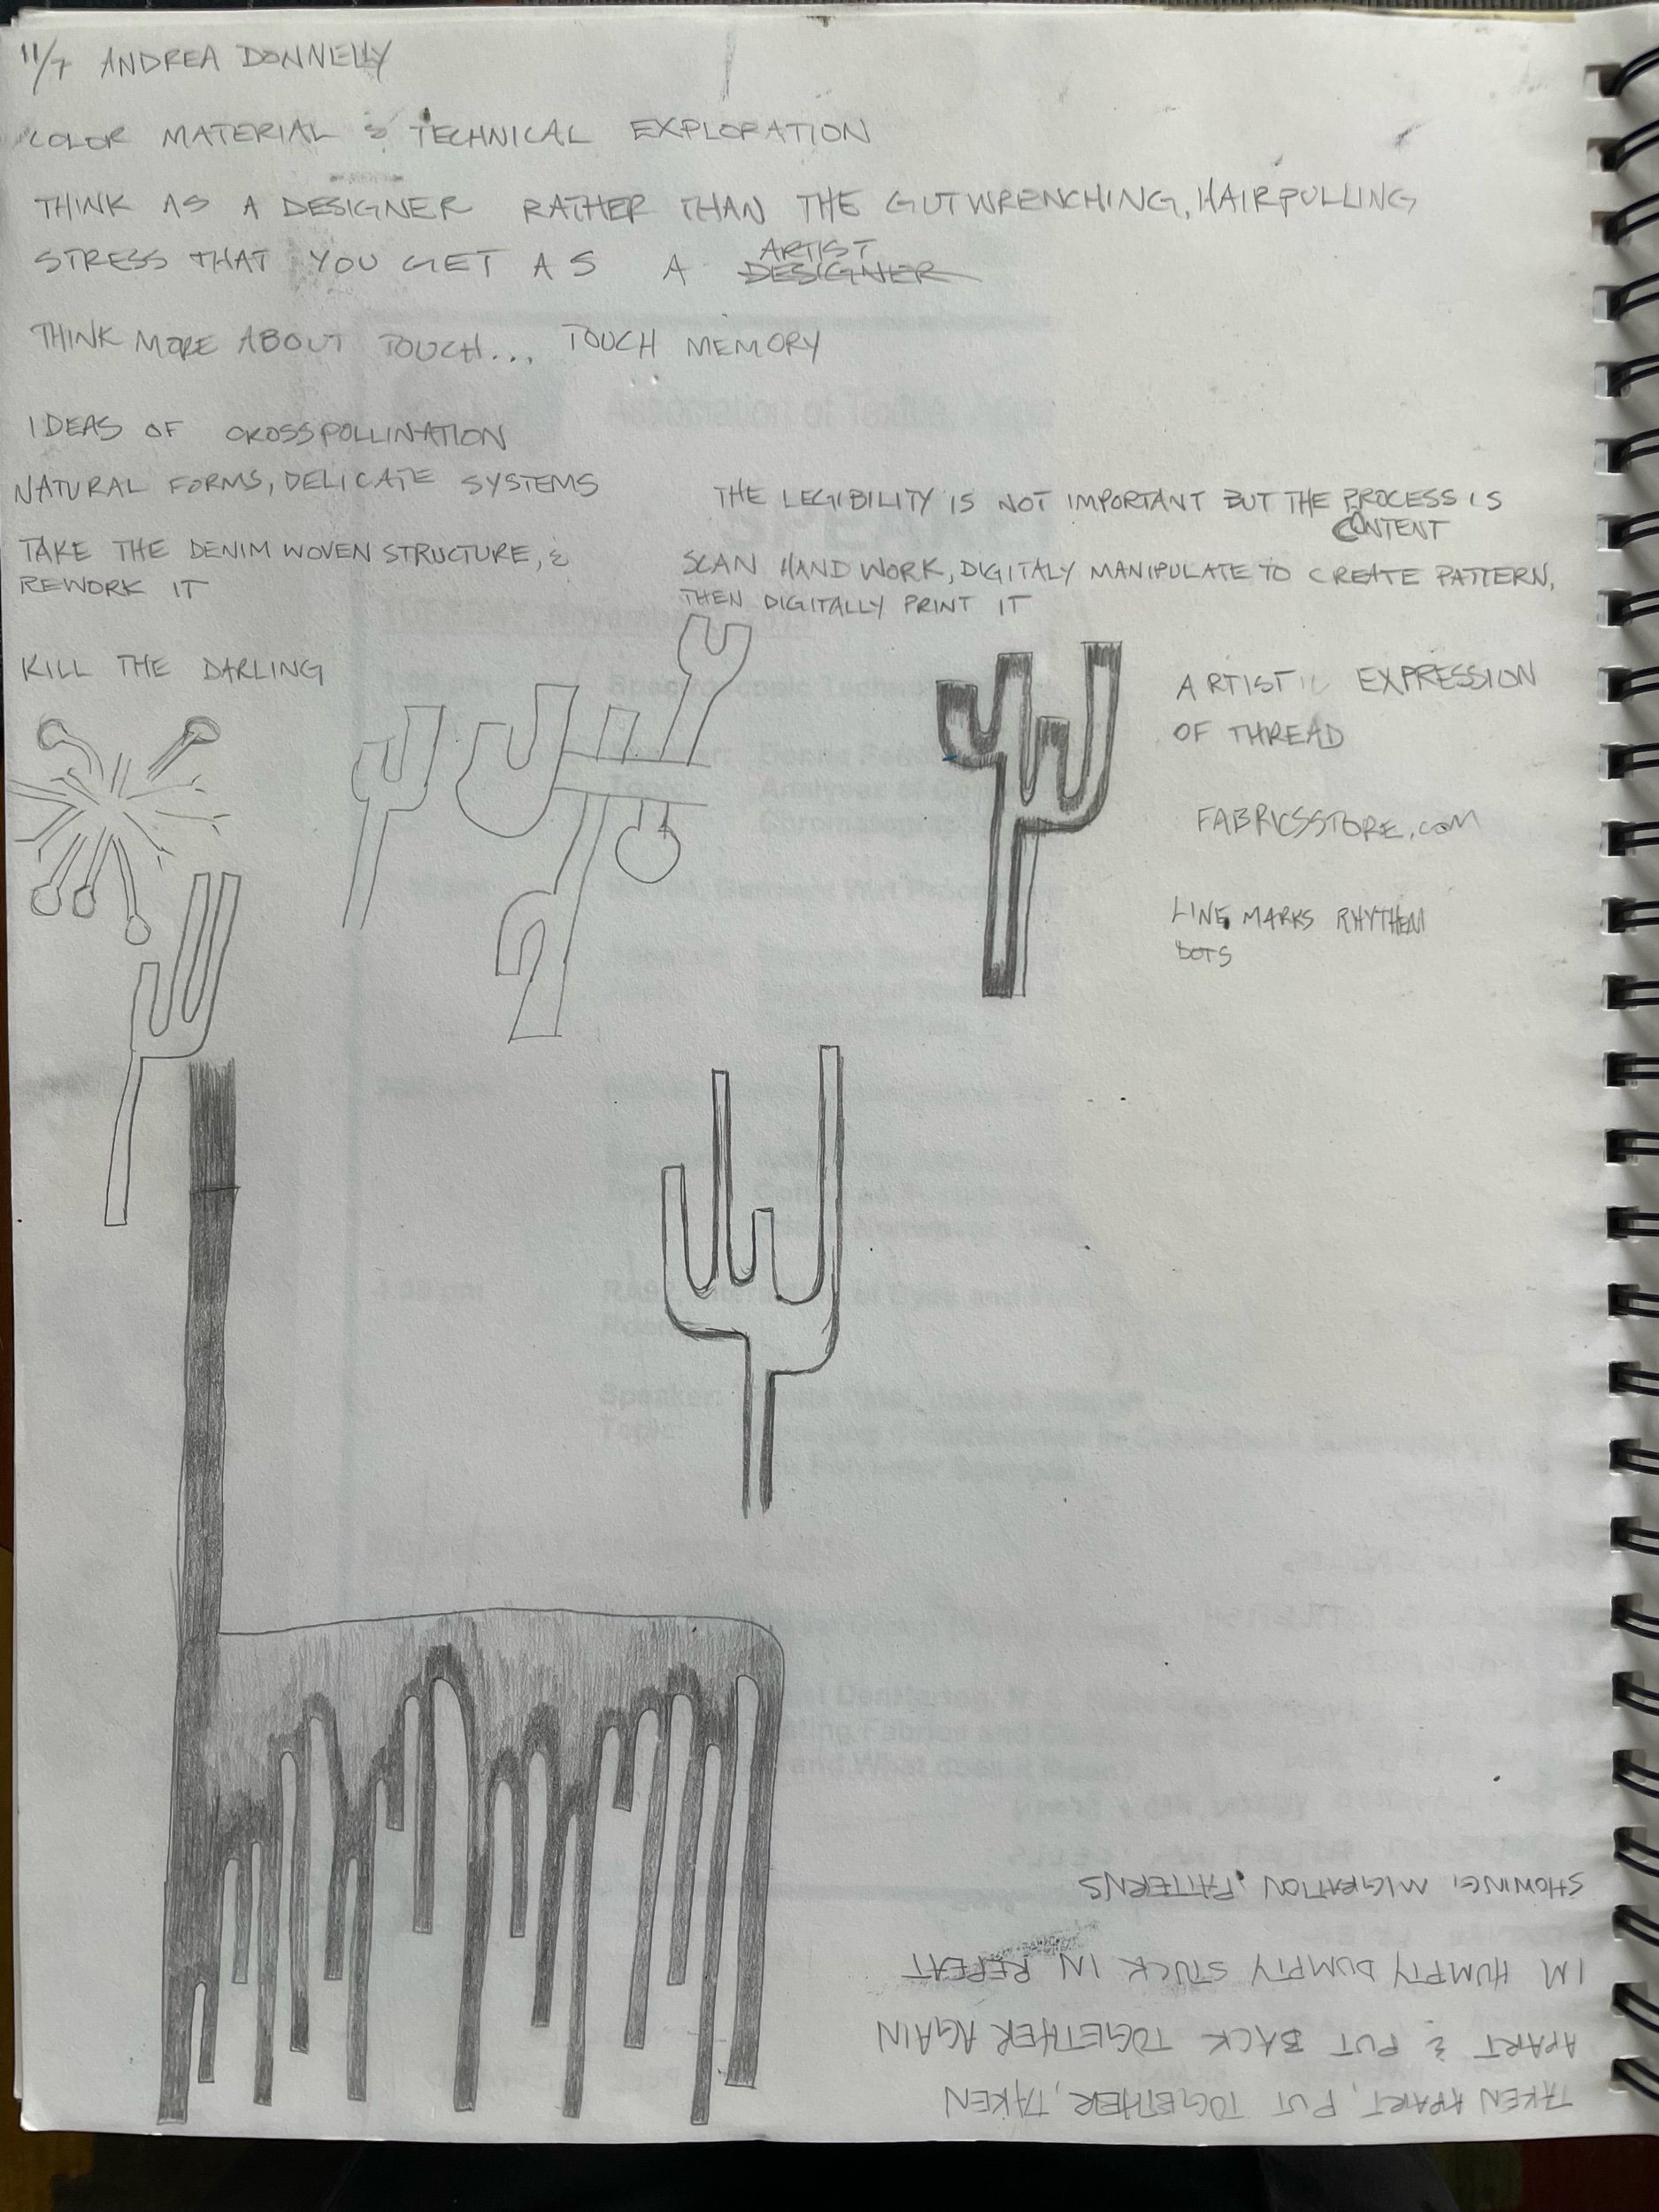 11/7 ANDREA DONNELLY
COLOR MATERIAL & TECHNICAL EXPLORATION
THINK AS A DESIGNER RATHER THAN THE GUTWRENCHING, HAIRPULLING
STRESS THAT YOU GET AS A DESIGNER
ARTIST
THINK MORE ABOUT TOUCH... TOUCH MEMORY
IDEAS OF CROSSPOLLINATION
NATURAL FORMS, DELICATE SYSTEMS
TAKE THE DENIM WOVEN STRUCTURE, &
REWORK IT
KILL THE DARLING
THE LEGIBILITY IS NOT IMPORTANT BUT THE PROCESS IS
CONTENT
SCAN HAND WORK, DIGITALY MANIPULATE TO CREATE PATTERN,
THEN DIGITALLY PRINT IT
ARTISTIC EXPRESSION
OF THREAD
FABRICSSTORE.COM
LINE MARKS RHYTHEM
DOTS
TAKEN APART, PUT TOGETHER, TAKEN
APART & PUT BACK TOGETHER AGAIN
IM HUMPTY DUMPTY STUCK IN REPEAT
SHOWING MIGRATION PATTERNS